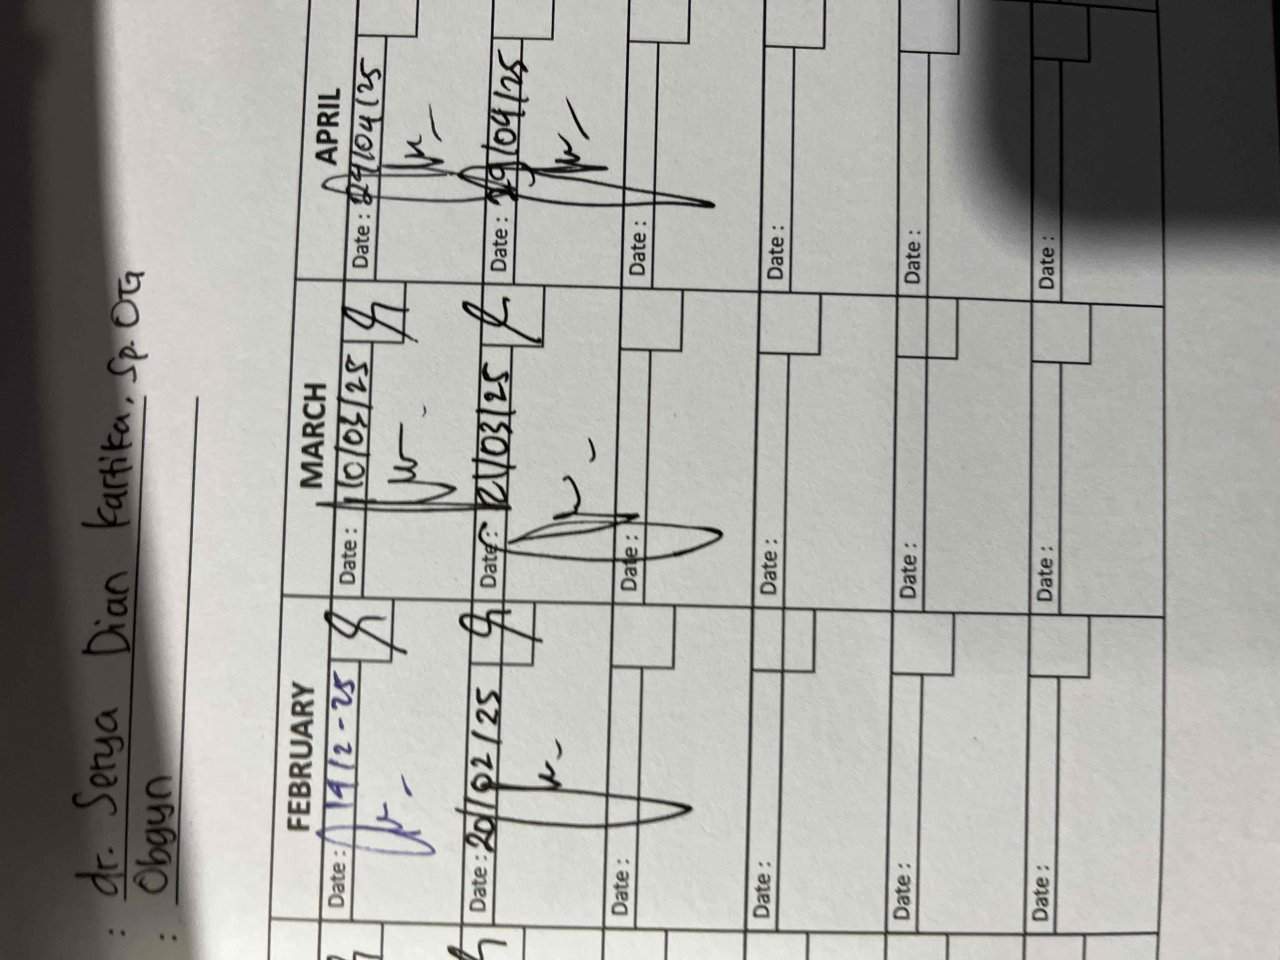 : dr. Senya Dian Kartika, Sp.OG
: Obgyn
FEBRUARY MARCH APRIL
Date : 19/2-25 Date : 10/03/25 Date : 24/04/25
Date : 20/02/25 Date : 21/03/25 Date : 29/04/25
Date : Date : Date :
Date : Date : Date :
Date : Date : Date :
Date : Date : Date :